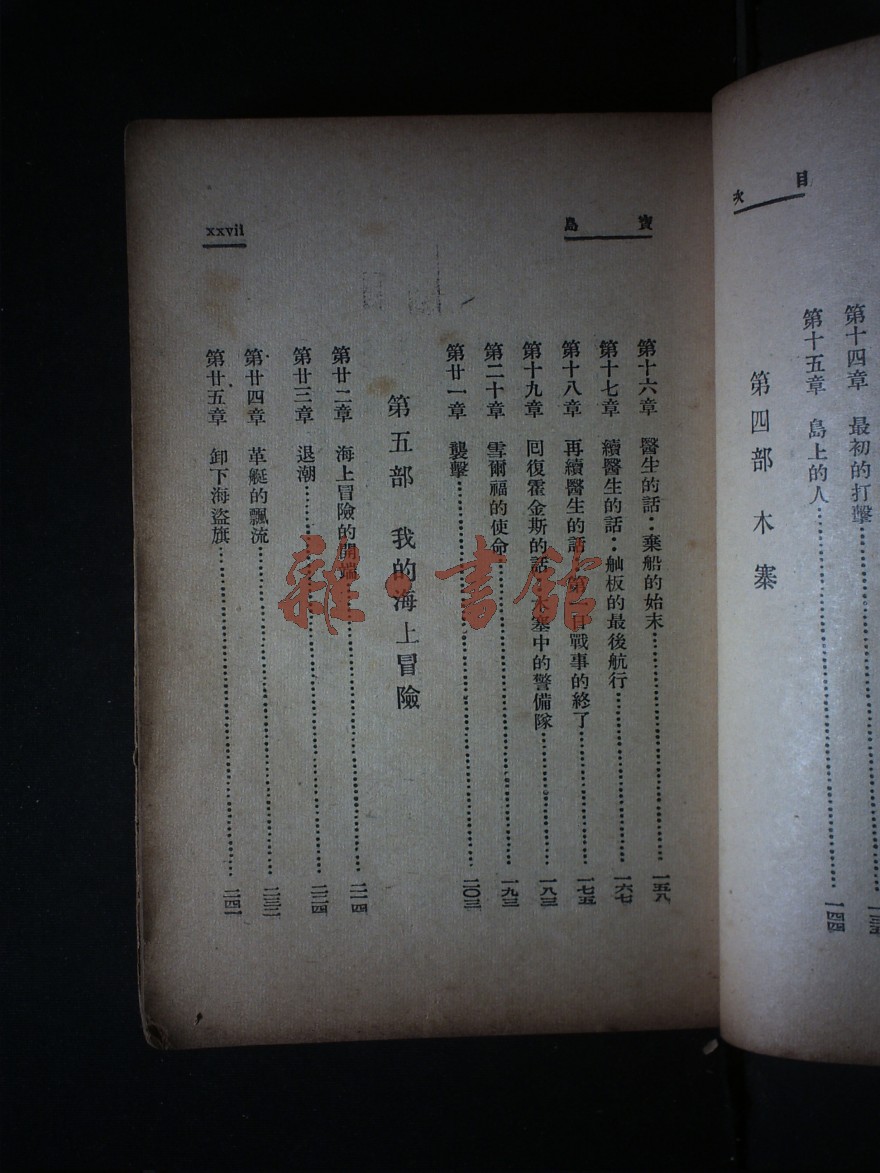 目次
第十四章 最初的打擊
第十五章 島上的人……一四四
第四部 木寨
寶島
xxvii
第十六章 醫生的話：棄船的始末……一五八
第十七章 續醫生的話：舢板的最後航行……一六七
第十八章 再續醫生的話：第一日戰事的終了……一七五
第十九章 囘復霍金斯的話：木寨中的警備隊……一八三
第二十章 雪爾福的使命……一九三
第廿一章 襲擊……二〇三
第五部 我的海上冒險
第廿二章 海上冒險的開端……二一四
第廿三章 退潮……二二四
第廿四章 革艇的飄流……二三二
第廿五章 卸下海盜旗……二四一
雜·書館